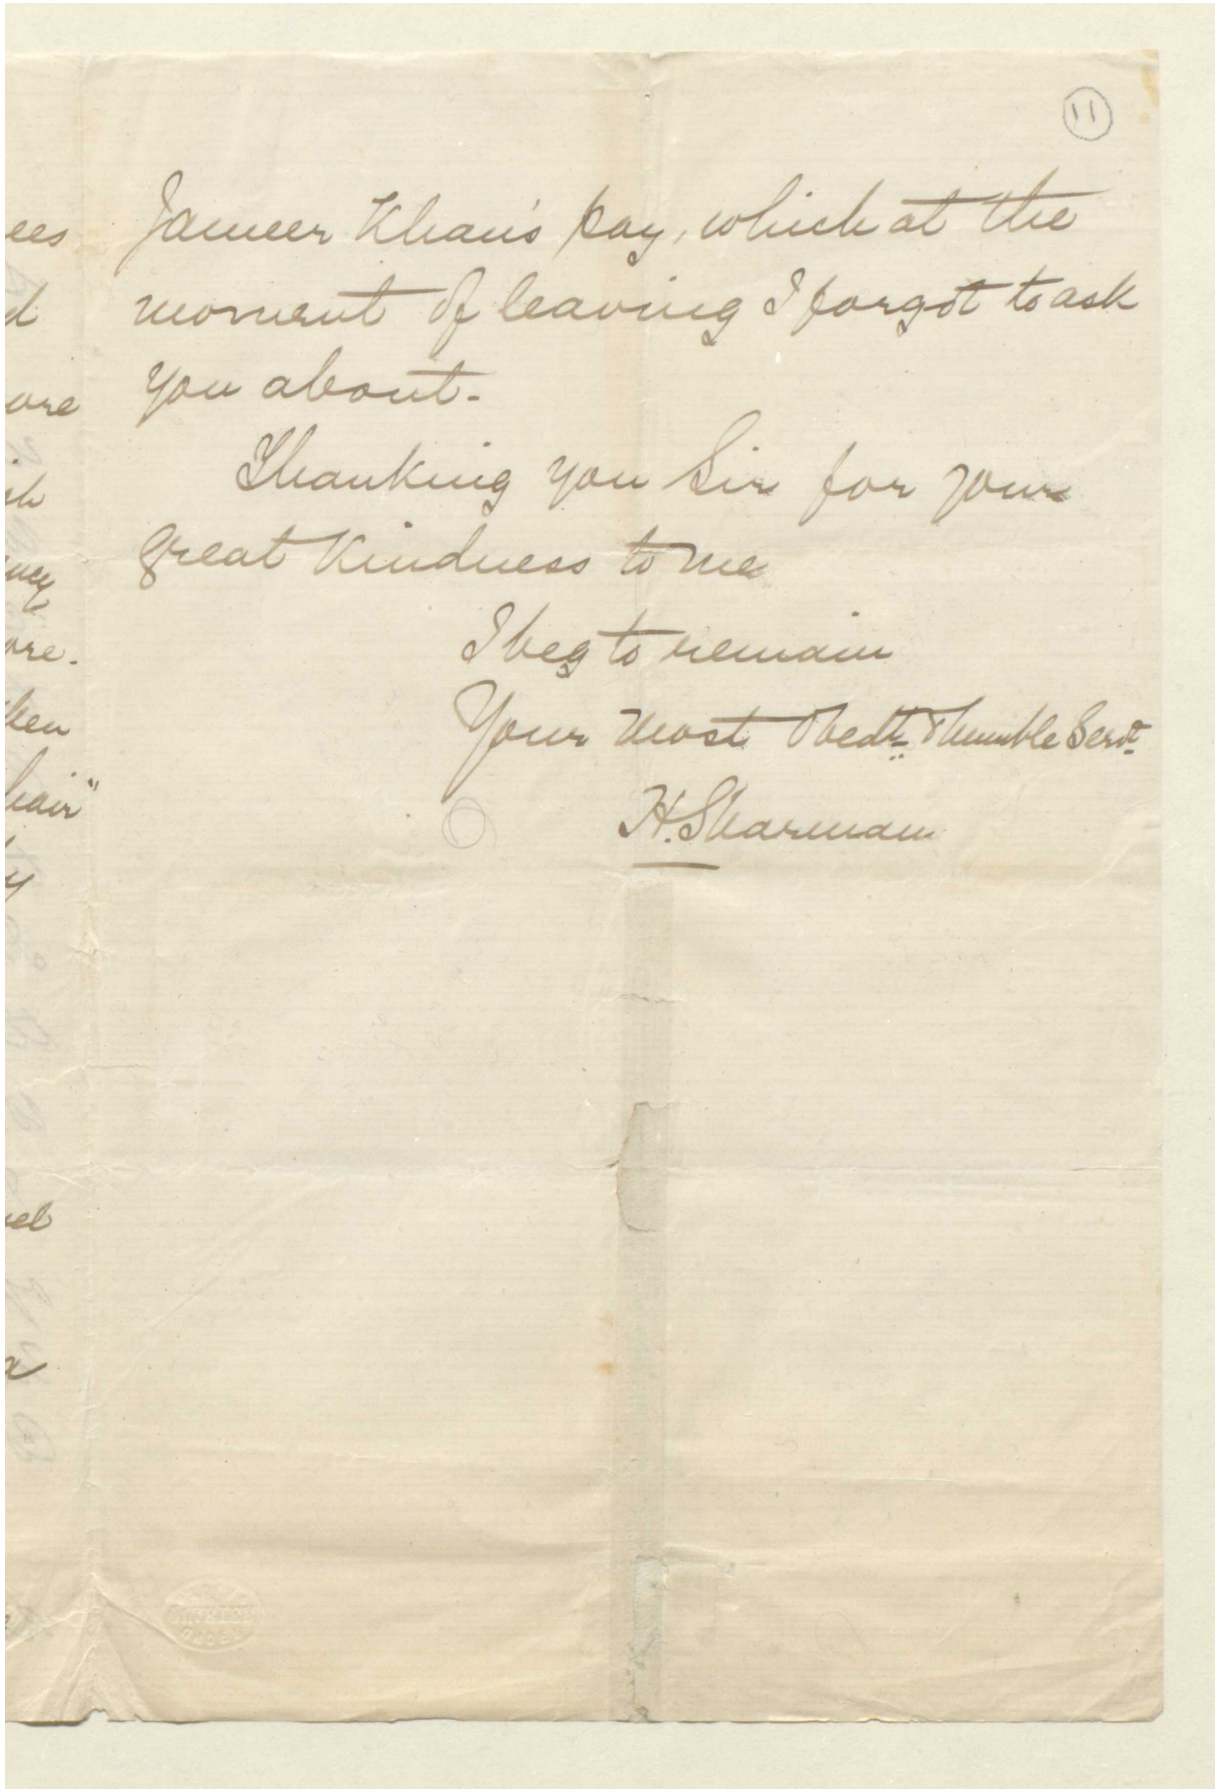 11
Jameer Khan's pay, which at the
moment of leaving I forgot to ask
you about.
Thanking you Sir for your
great kindness to me
I beg to remain
Your most Obedt & humble Servt
H. Sharman
ees
d
ore
ore.
ken
hair"
y
el
a